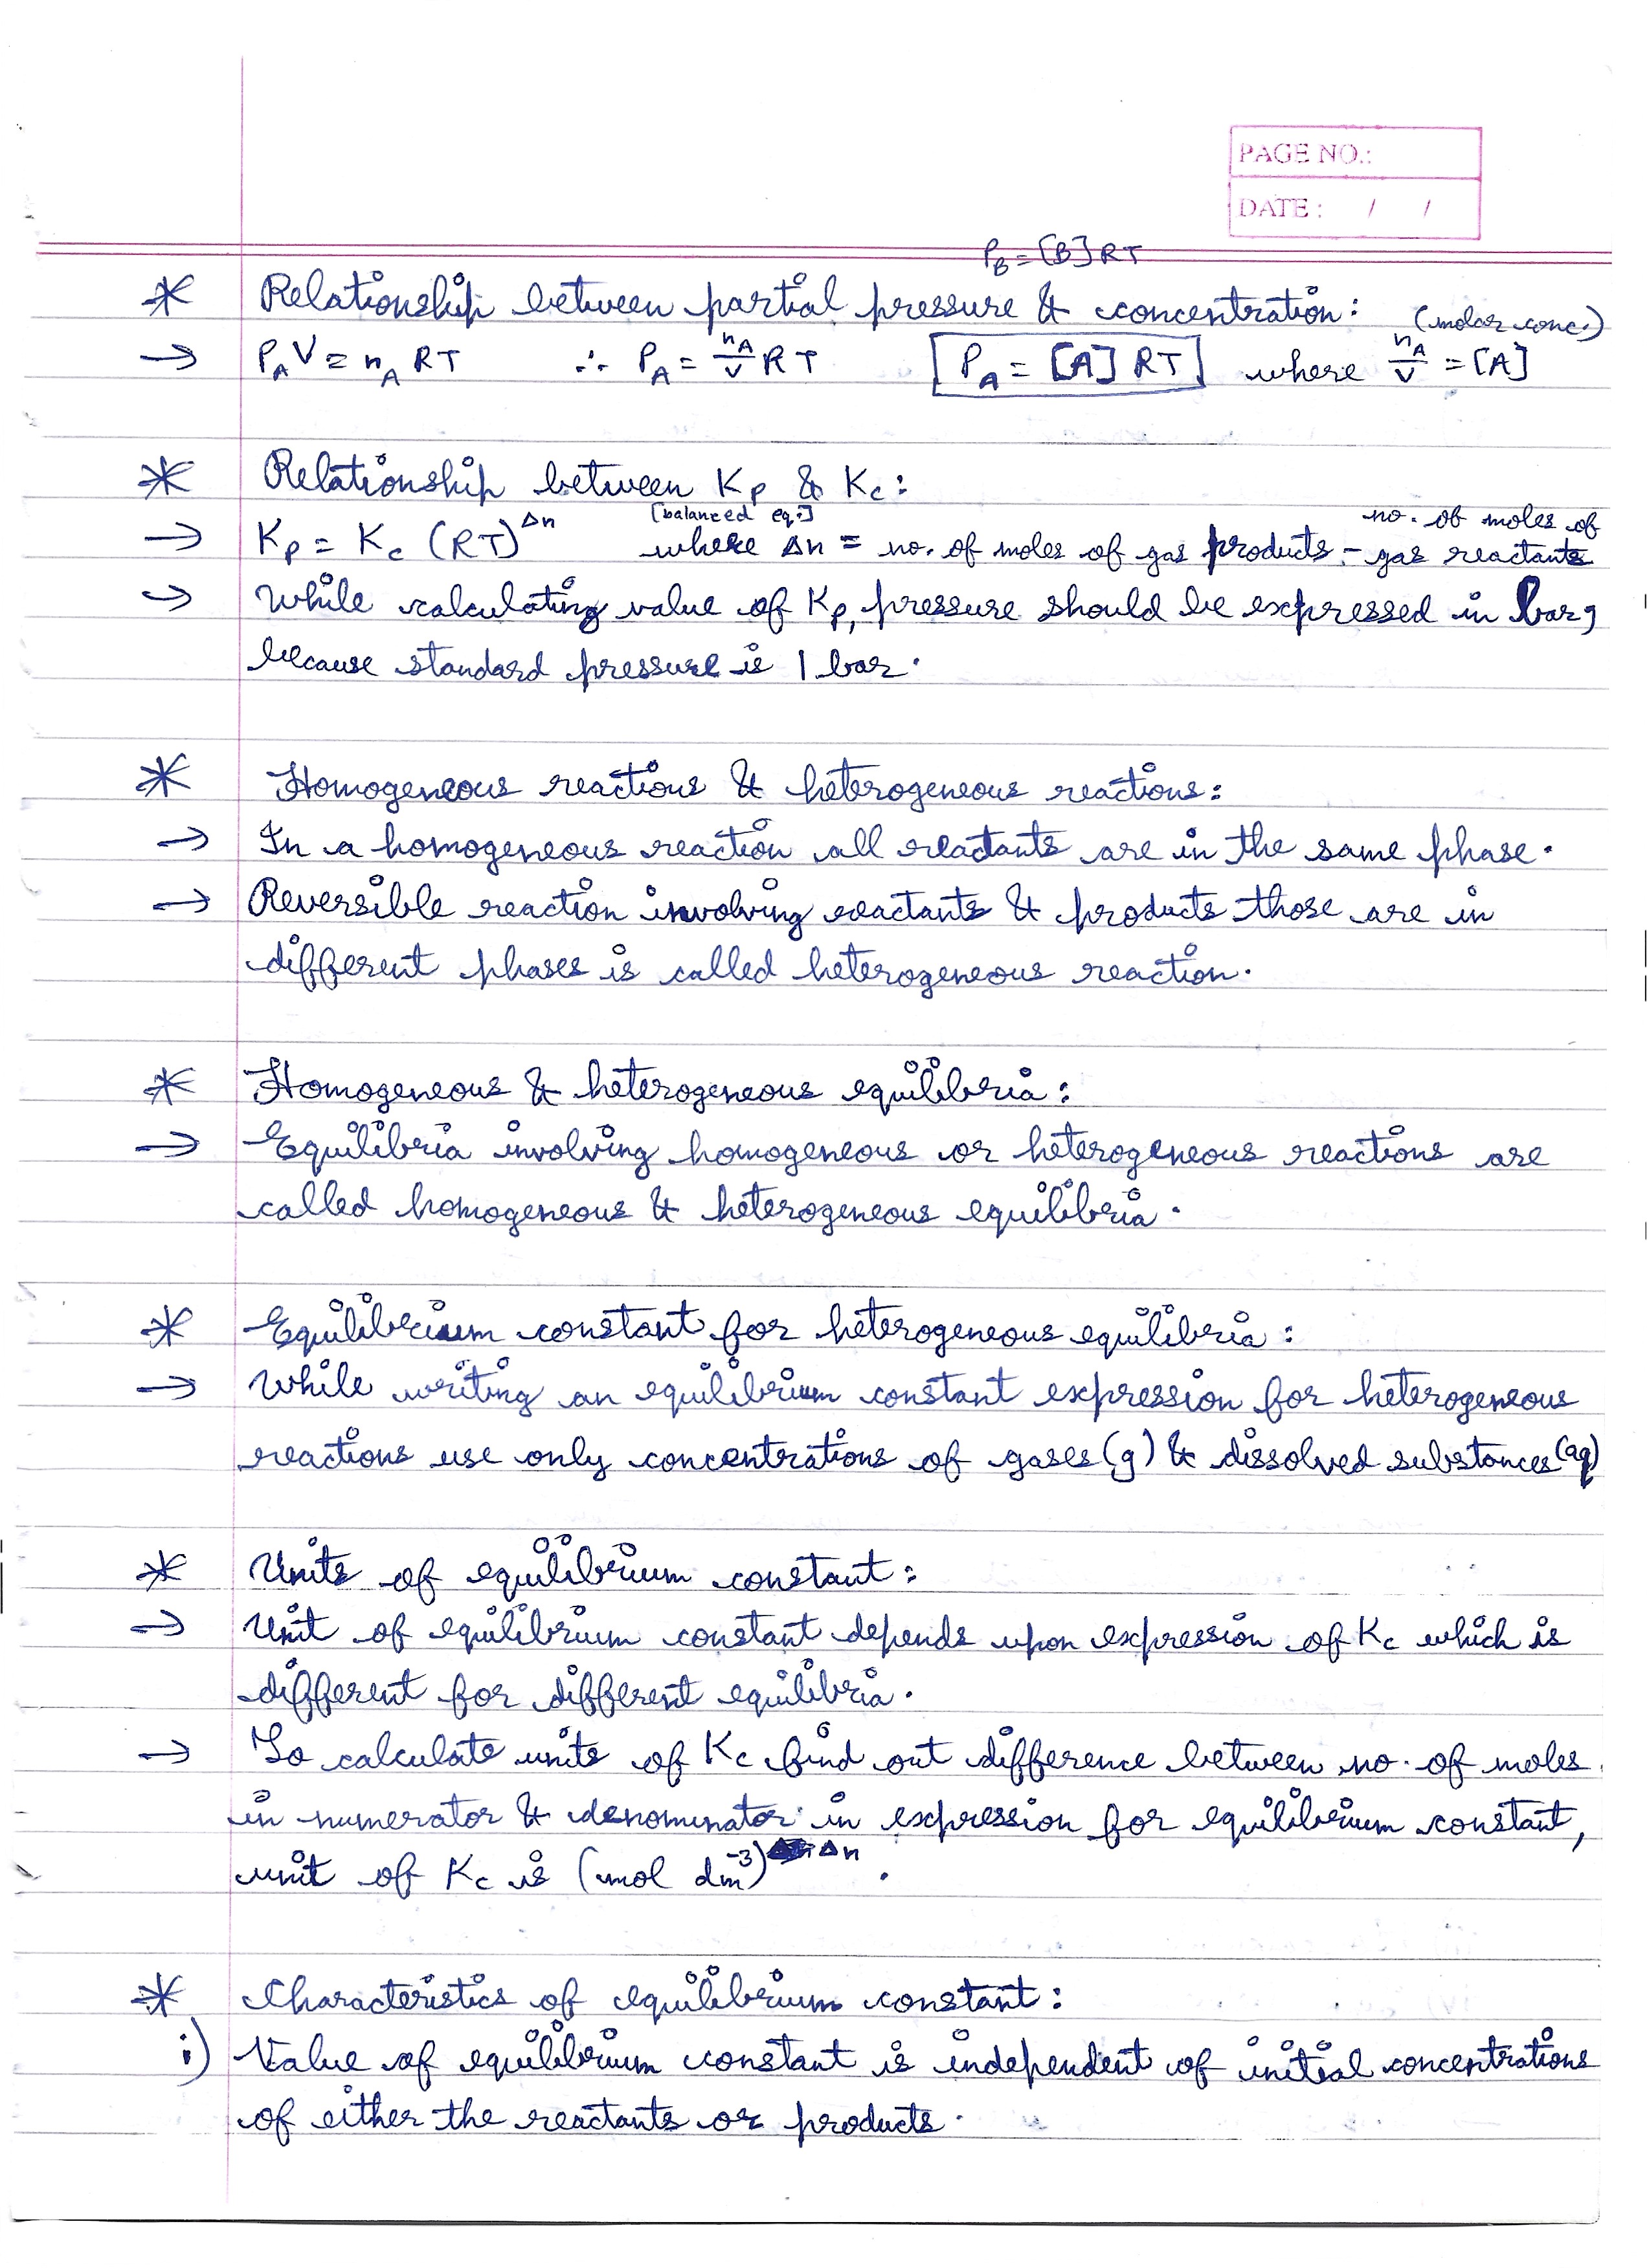 PAGE NO.:
DATE : / /
P_B = [B] RT
* Relationship between partial pressure & concentration : (molar conc.)
→ P_A V = n_A RT ∴ P_A = n_A/V RT [P_A = [A] RT] where n_A/V = [A]
* Relationship between Kp & Kc :
[balanced eq.] no. of moles of
→ Kp = Kc (RT)^Δn where Δn = no. of moles of gas products - gas reactants
→ While calculating value of Kp, pressure should be expressed in bar,
because standard pressure is 1 bar.
* Homogeneous reactions & heterogeneous reactions :
→ In a homogeneous reaction all reactants are in the same phase.
→ Reversible reaction involving reactants & products those are in
different phases is called heterogeneous reaction.
* Homogeneous & heterogeneous equilibria :
→ Equilibria involving homogeneous or heterogeneous reactions are
called homogeneous & heterogeneous equilibria.
* Equilibrium constant for heterogeneous equilibria :
→ While writing an equilibrium constant expression for heterogeneous
reactions use only concentrations of gases (g) & dissolved substances (aq)
* Units of equilibrium constant :
→ Unit of equilibrium constant depends upon expression of Kc which is
different for different equilibria.
→ To calculate units of Kc find out difference between no. of moles
in numerator & denominator in expression for equilibrium constant,
unit of Kc is (mol dm^-3)^Δn .
* Characteristics of equilibrium constant :
i) Value of equilibrium constant is independent of initial concentrations
of either the reactants or products.